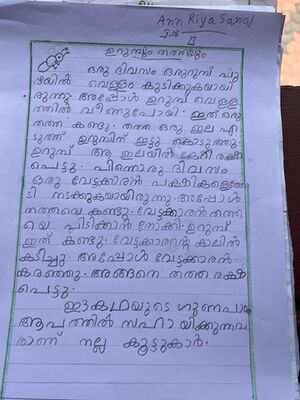 Ann Riya Sanal
ഉറുമ്പും തത്തയും
ഒരു ദിവസം ഒരുറുമ്പ് പു
ഴയിൽ വെള്ളം കുടിക്കുകയായി
രുന്നു. അപ്പോൾ ഉറുമ്പ് വെള്ള
ത്തിൽ വീണുപോയി. ഇത് ഒരു
തത്ത കണ്ടു. തത്ത ഒരു ഇല എ
ടുത്ത് ഉറുമ്പിന് ഇട്ടു കൊടുത്തു.
ഉറുമ്പ് ആ ഇലയിൽ കേറി രക്ഷ
പെട്ടു. പിന്നൊരു ദിവസം
ഒരു വേട്ടക്കാരൻ പക്ഷികളെതേ
ടി നടക്കുകയായിരുന്നു. അപ്പോൾ
തത്തയെ കണ്ടു. വേട്ടക്കാരൻ തത്ത
യെ പിടിക്കാൻ നോക്കി. ഉറുമ്പ്
ഇത് കണ്ടു. വേട്ടക്കാരന്റെ കാലിൽ
കടിച്ചു. അപ്പോൾ വേട്ടക്കാരൻ
കരഞ്ഞു. അങ്ങനെ തത്ത രക്ഷ
പെട്ടു.
ഈ കഥയുടെ ഗുണപാഠം
ആപത്തിൽ സഹായിക്കുന്നവ
രാണ് നല്ല കൂട്ടുകാർ.